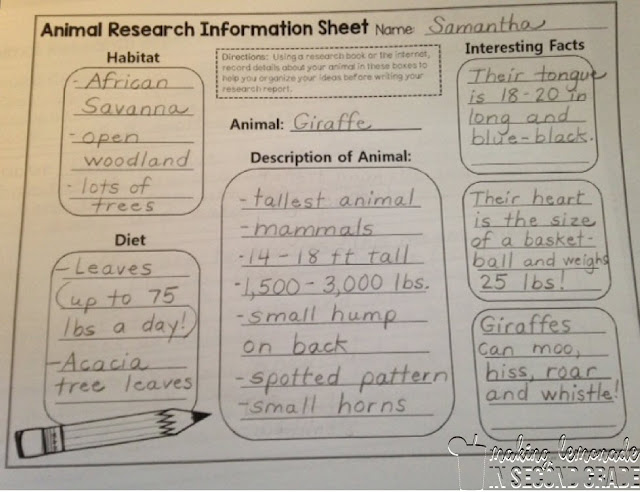 Animal Research Information Sheet Name: Samantha
Habitat
- African
Savanna
- open
woodland
- lots of
trees
Directions: Using a research book or the internet,
record details about your animal in these boxes to
help you organize your ideas before writing your
research report.
Animal: Giraffe
Interesting Facts
Their tongue
is 18-20 in
long and
blue-black.
Description of Animal:
- tallest animal
- mammals
- 14 - 18 ft tall
- 1,500 - 3,000 lbs.
- small hump
on back
- spotted pattern
- small horns
Their heart
is the size
of a basket-
ball and weighs
25 lbs!
Diet
- Leaves
(up to 75
lbs a day!)
- Acacia
tree leaves
Giraffes
can moo,
hiss, roar
and whistle!
making lemonade
IN SECOND GRADE